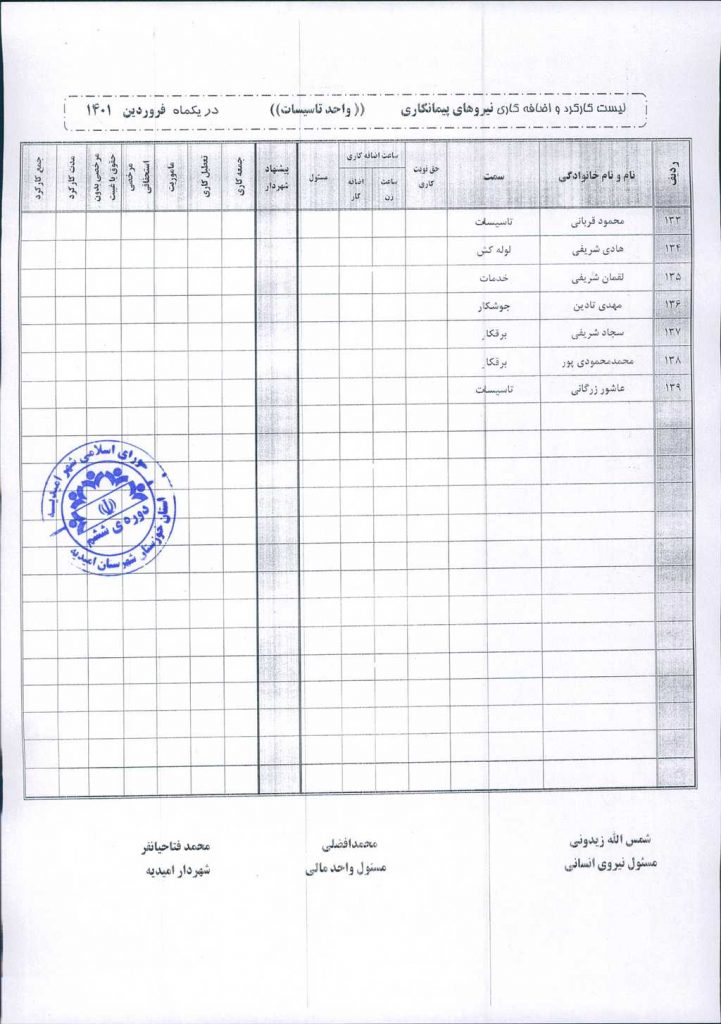 لیست کارکرد و اضافه کاری نیروهای پیمانکاری (( واحد تاسیسات)) در یکماه فروردین ۱۴۰۱
ردیف نام و نام خانوادگی سمت حق نوبت کاری ساعت اضافه کاری مسئول پیشنهاد شهردار جمعه کاری تعطیل کاری ماموریت مرخصی استحقاقی مرخصی بدون حقوق یا غیبت مدت کارکرد جمع کارکرد
ساعت زن اضافه کار
۱۳۳ محمود قربانی تاسیسات
۱۳۴ هادی شریفی لوله کش
۱۳۵ لقمان شریفی خدمات
۱۳۶ مهدی تادین جوشکار
۱۳۷ سجاد شریفی برقکار
۱۳۸ محمدمحمودی پور برقکار
۱۳۹ عاشور زرگانی تاسیسات
شورای اسلامی شهر امیدیه
دوره ی ششم
استان خوزستان شهرستان امیدیه
شمس الله زیدونی محمدافضلی محمد فتاحیانفر
مسئول نیروی انسانی مسئول واحد مالی شهردار امیدیه